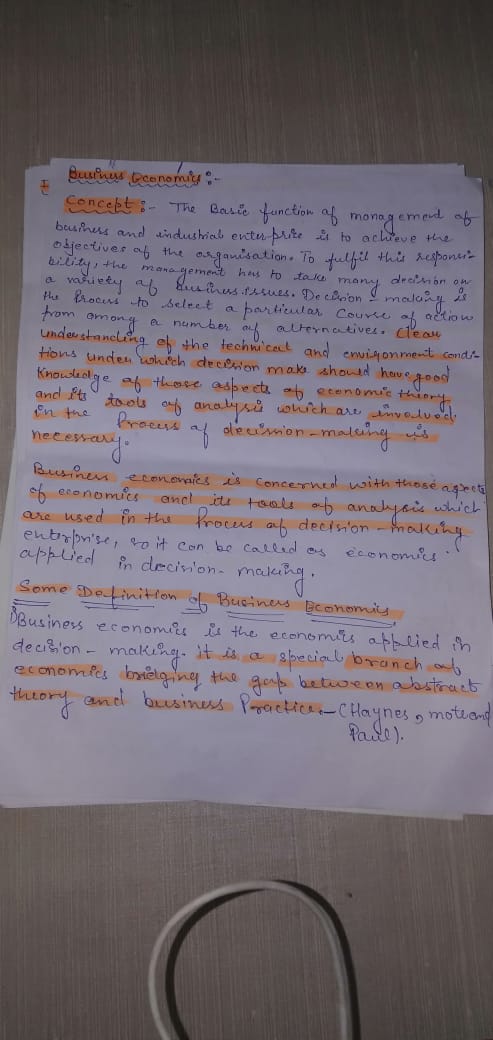 Business Economics :-
I
Concept :- The Basic function of management of
business and industrial enterprise is to achieve the
objectives of the organisation. To fulfil this responsi-
bility, the management has to take many decision on
a variety of business issues. Decision - making is
the Process to select a particular Course of action
from among a number of alternatives. Clear
understanding of the technical and environment condi-
tions under which decision make should have good
Knowledge of those aspects of economic theory
and its tools of analysis which are involved
in the Process of decision-making is
necessary.
Business economics is concerned with those aspects
of economics and its tools of analysis which
are used in the Process of decision - making
enterprise, so it can be called as economics
applied in decision-making.
Some Definition of Business Economics
① Business economics is the economics applied in
decision - making. it is a special branch of
economics bridging the gap between abstract
theory and business Practice. - (Haynes, mote and
Paul).